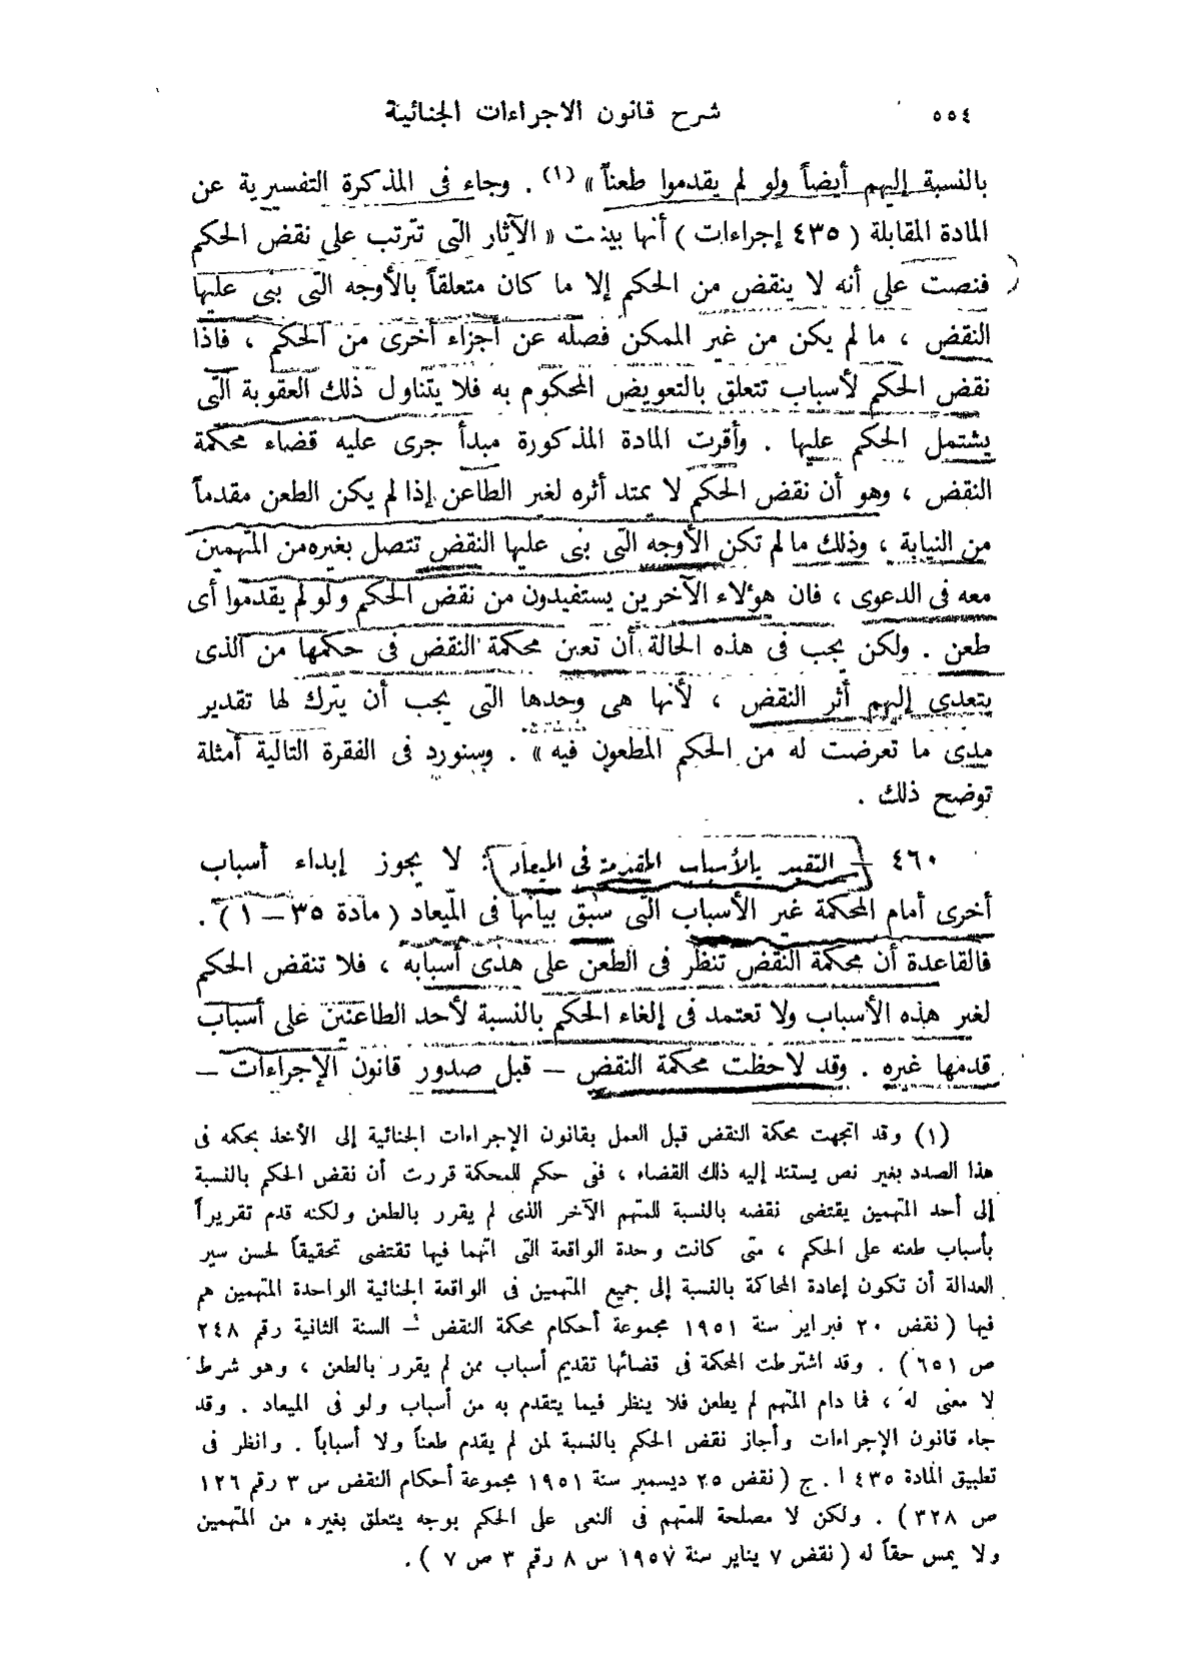 ٥٥٤
شرح قانون الاجراءات الجنائية
بالنسبة إليهم أيضاً ولو لم يقدموا طعناً » (١) . وجاء فى المذكرة التفسيرية عن
المادة المقابلة ( ٤٣٥ إجراءات ) أنها بينت « الآثار التى تترتب على نقض الحكم
فنصت على أنه لا ينقض من الحكم إلا ما كان متعلقاً بالأوجه التى بنى عليها
النقض ، ما لم يكن من غير الممكن فصله عن أجزاء أخرى من الحكم ، فاذا
نقض الحكم لأسباب تتعلق بالتعويض المحكوم به فلا يتناول ذلك العقوبة التى
يشتمل الحكم عليها . وأقرت المادة المذكورة مبدأ جرى عليه قضاء محكمة
النقض ، وهو أن نقض الحكم لا يمتد أثره لغير الطاعن إذا لم يكن الطعن مقدماً
من النيابة ، وذلك ما لم تكن الأوجه التى بنى عليها النقض تتصل بغيره من المتهمين
معه فى الدعوى ، فان هؤلاء الآخرين يستفيدون من نقض الحكم ولو لم يقدموا أى
طعن . ولكن يجب فى هذه الحالة أن تعين محكمة النقض فى حكمها من الذى
يتعدى إليهم أثر النقض ، لأنها هى وحدها التى يجب أن يترك لها تقدير
مدى ما تعرضت له من الحكم المطعون فيه » . وسنورد فى الفقرة التالية أمثلة
توضح ذلك .
٤٦٠ – التقيد بالأسباب المقدمة فى الميعاد : لا يجوز إبداء أسباب
أخرى أمام المحكمة غير الأسباب التى سبق بيانها فى الميعاد ( مادة ٣٥ – ١ ) .
فالقاعدة أن محكمة النقض تنظر فى الطعن على هدى أسبابه ، فلا تنقض الحكم
لغير هذه الأسباب ولا تعتمد فى إلغاء الحكم بالنسبة لأحد الطاعنين على أسباب
قدمها غيره . وقد لاحظت محكمة النقض – قبل صدور قانون الإجراءات –
(١) وقد اتجهت محكمة النقض قبل العمل بقانون الإجراءات الجنائية إلى الأخذ بحكمه فى
هذا الصدد بغير نص يستند إليه ذلك القضاء ، ففى حكم للمحكمة قررت أن نقض الحكم بالنسبة
إلى أحد المتهمين يقتضى نقضه بالنسبة للمتهم الآخر الذى لم يقرر بالطعن ولكنه قدم تقريراً
بأسباب طعنه على الحكم ، متى كانت وحدة الواقعة التى اتهما فيها تقتضى تحقيقاً لحسن سير
العدالة أن تكون إعادة المحاكمة بالنسبة إلى جميع المتهمين فى الواقعة الجنائية الواحدة المتهمين هم
فيها ( نقض ٢٠ فبراير سنة ١٩٥١ مجموعة أحكام محكمة النقض – السنة الثانية رقم ٢٤٨
ص ٦٥١ ) . وقد اشترطت المحكمة فى قضائها تقديم أسباب ممن لم يقرر بالطعن ، وهو شرط
لا معنى له ، فما دام المتهم لم يطعن فلا ينظر فيما يتقدم به من أسباب ولو فى الميعاد . وقد
جاء قانون الإجراءات وأجاز نقض الحكم بالنسبة لمن لم يقدم طعناً ولا أسباباً . وانظر فى
تطبيق المادة ٤٣٥ ا . ج ( نقض ٢٥ ديسمبر سنة ١٩٥١ مجموعة أحكام النقض س ٣ رقم ١٢٦
ص ٣٢٨ ) . ولكن لا مصلحة للمتهم فى النعى على الحكم بوجه يتعلق بغيره من المتهمين
ولا يمس حقاً له ( نقض ٧ يناير سنة ١٩٥٧ س ٨ رقم ٣ ص ٧ ) .